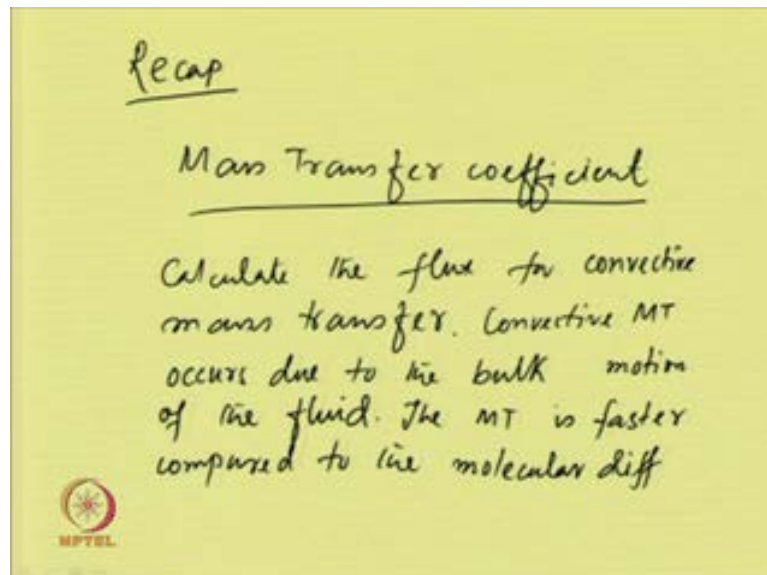 Recap
Mass Transfer coefficient
Calculate the flux for convective
mass transfer. Convective MT
occurs due to the bulk motion
of the fluid. The MT is faster
compared to the molecular diff
NPTEL